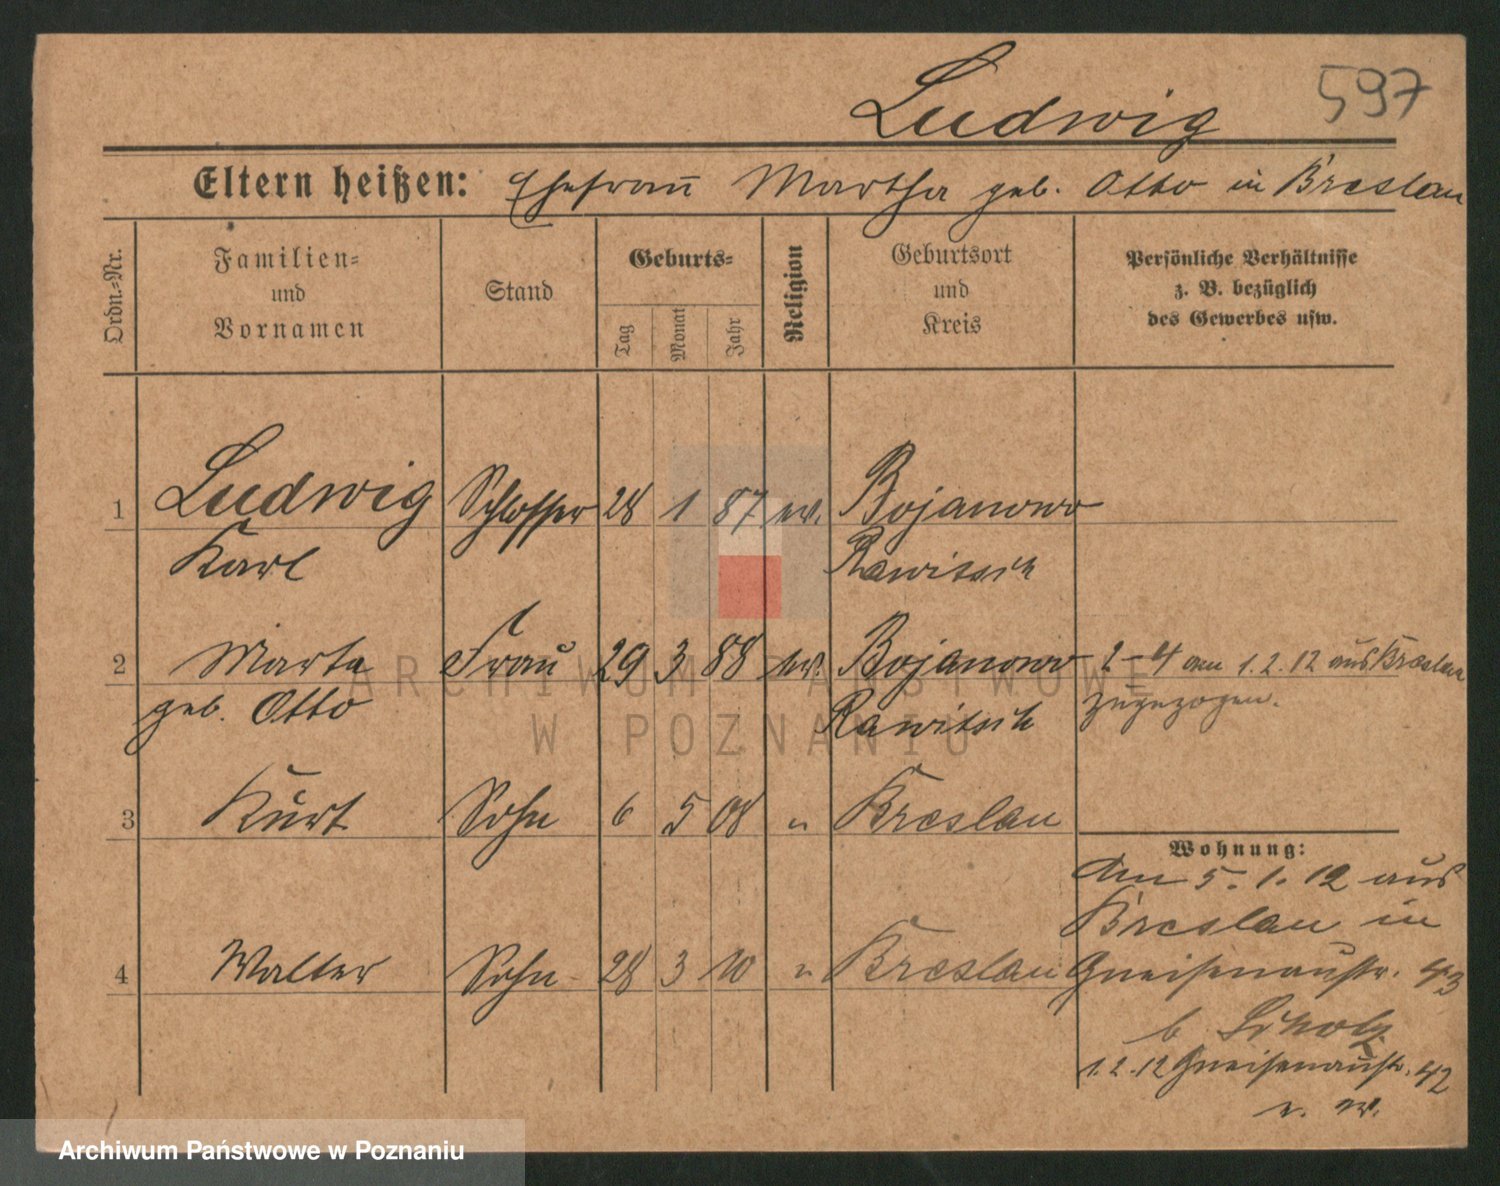 Ludwig 597
Eltern heißen: Ehefrau Martha geb. Otto in Breslau
Ordn.-Nr.
Familien-
und
Vornamen
Stand
Geburts-
Tag
Monat
Jahr
Religion
Geburtsort
und
Kreis
Persönliche Verhältnisse
z. B. bezüglich
des Gewerbes usw.
1 Ludwig Schlosser 28 1 87 ev. Bojanowo
Karl Rawitsch
2 Marta Frau 29 3 88 ev. Bojanowo 2-4 am 1.2.12 aus Breslau
geb. Otto Rawitsch zugezogen.
3 Kurt Sohn 6 5 08 " Breslau
Wohnung:
Am 5.1.12 aus
Breslau in
4 Walter Sohn 28 3 10 " Breslau Gneisenaustr. 43
b Scholz
1.2.12 Gneisenaustr. 42
ARCHIWUM PAŃSTWOWE
W POZNANIU
Archiwum Państwowe w Poznaniu